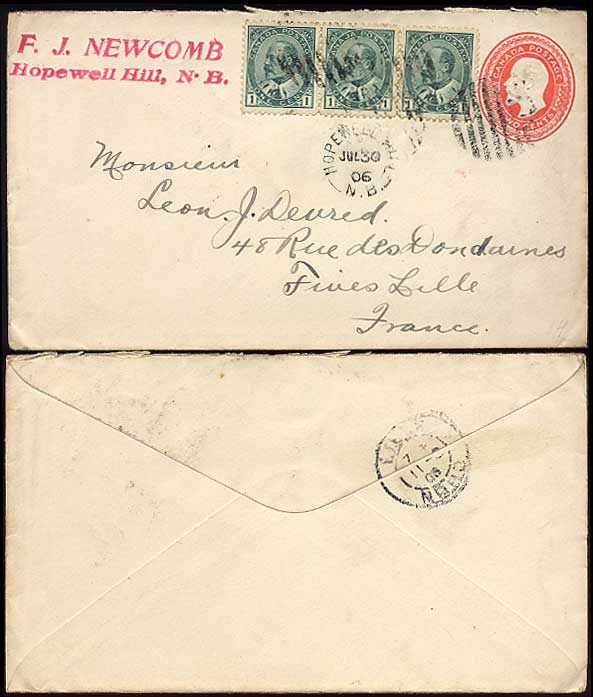 F. J. NEWCOMB
Hopewell Hill, N. B.
CANADA POSTAGE
1 CENT 1
CANADA POSTAGE
1 1
CANADA POSTAGE
CANADA POSTAGE
TWO CENTS
HOPEWELL HILL
JUL 30
06
N.B.
Monsieur
Leon. J. Devred.
48 Rue des Dondaines
Fives Lille
France.
4
LILLE
11
06
NORD